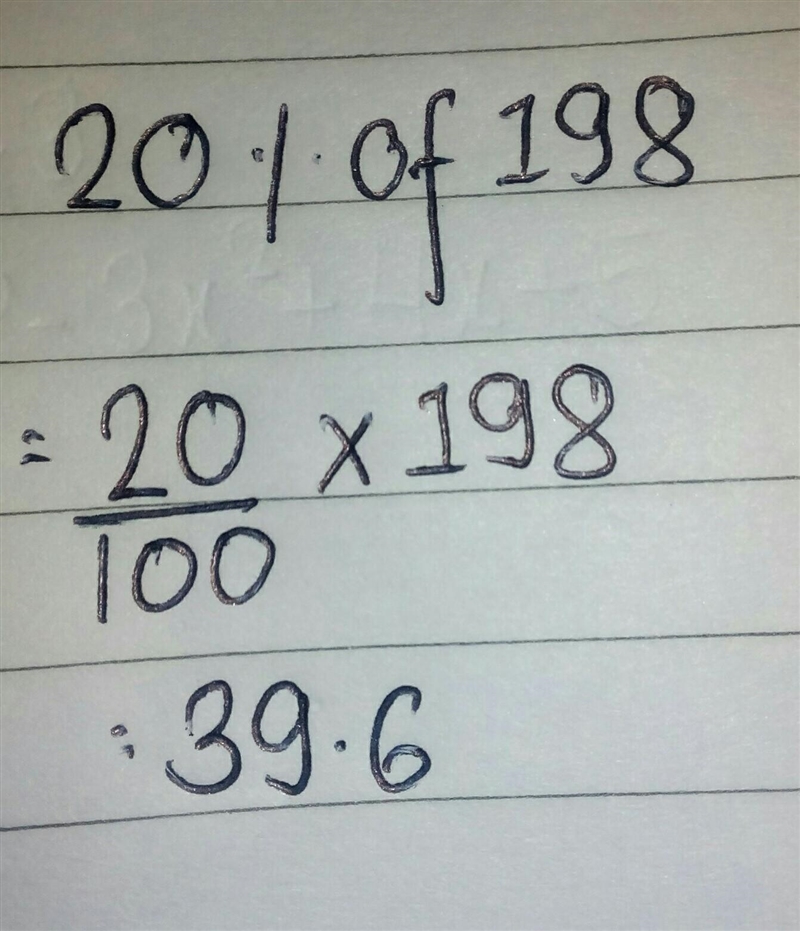 20 % of 198
= 20/100 x 198
= 39.6